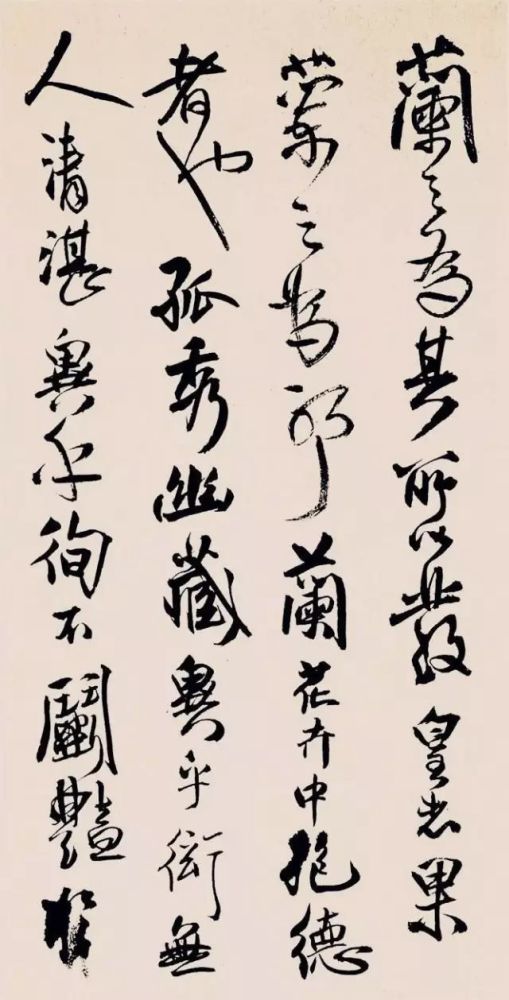 蘭之為其所以發皇者果
榮之為耶蘭花卉中抱德
者也孤秀幽藏異乎衒無
人清湛異乎徇不鬭豔